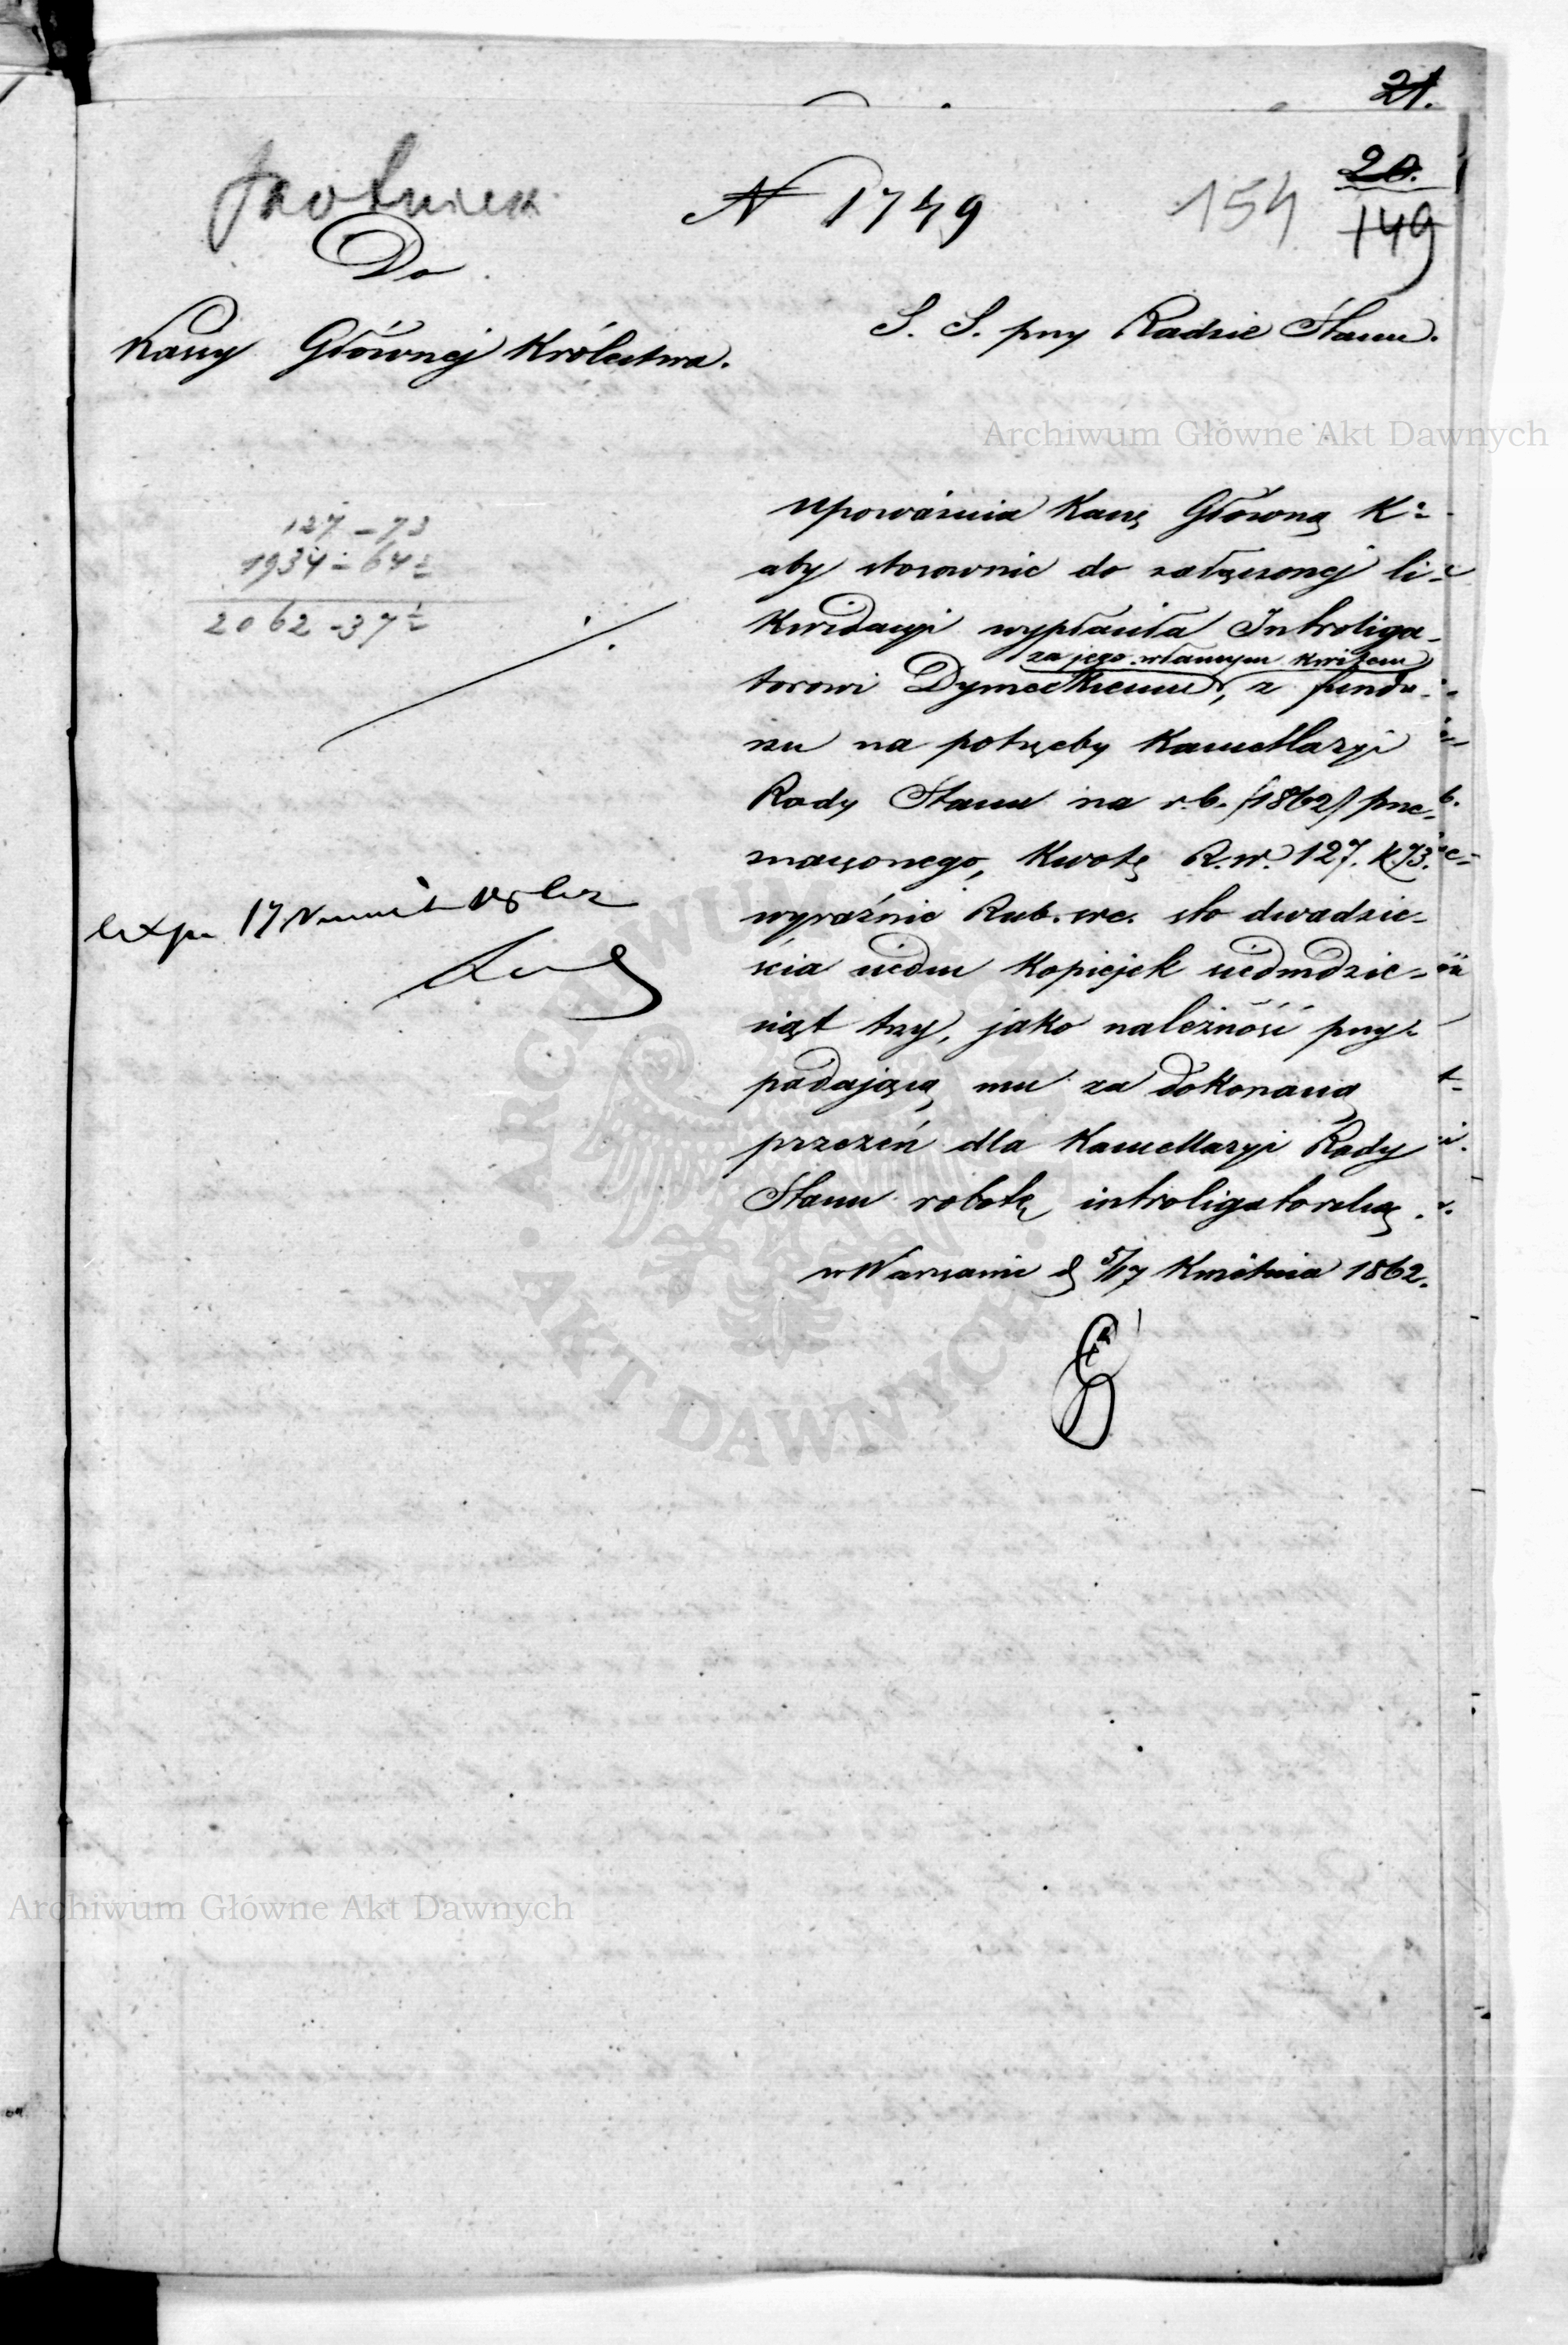 21.
20.
149
154
N 1749
Do
Kassy Głównej Królestwa.
S. S. przy Radzie Stanu.
127 - 73
1934 - 64½
2062 - 37½
upoważnia Kassę Główną K
aby stosownie do załączonej li-
kwidacyi wypłaciła Introliga-
za jego własnym kwitem
torowi Dymeckiemu, z fundu-
szu na potrzeby Kancellaryi
Rady Stanu na r. b. (1862) prze-
znaczonego, kwotę R. sr. 127. k 73.
wyraźnie Rub. sre. sto dwadzie-
ścia siedm kopiejek siedmdzie-
siąt trzy, jako należność przy-
padającą mu za dokonaną
przezeń dla Kancellaryi Rady
Stanu robotę introligatorską.
w Warszawie d 5/17 Kwietnia 1862.
Exp. 17
Archiwum Główne Akt Dawnych
ARCHIWUM GŁÓWNE AKT DAWNYCH
Archiwum Główne Akt Dawnych